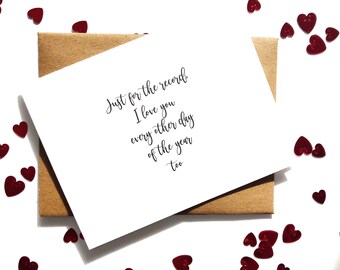 Just for the record
I love you
every other day
of the year
too